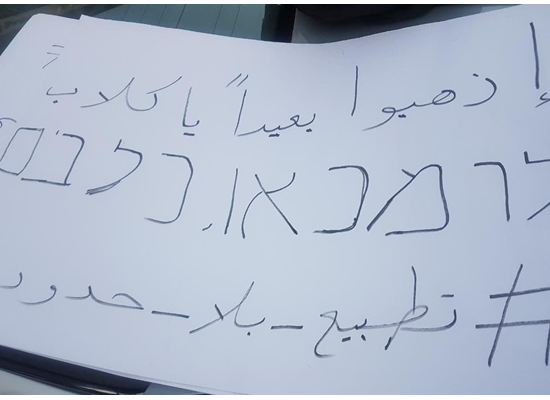 إذهبوا بعيداً يا كلاب
לכו מכאן, כלבים
#تطبيع_بلا_حدود